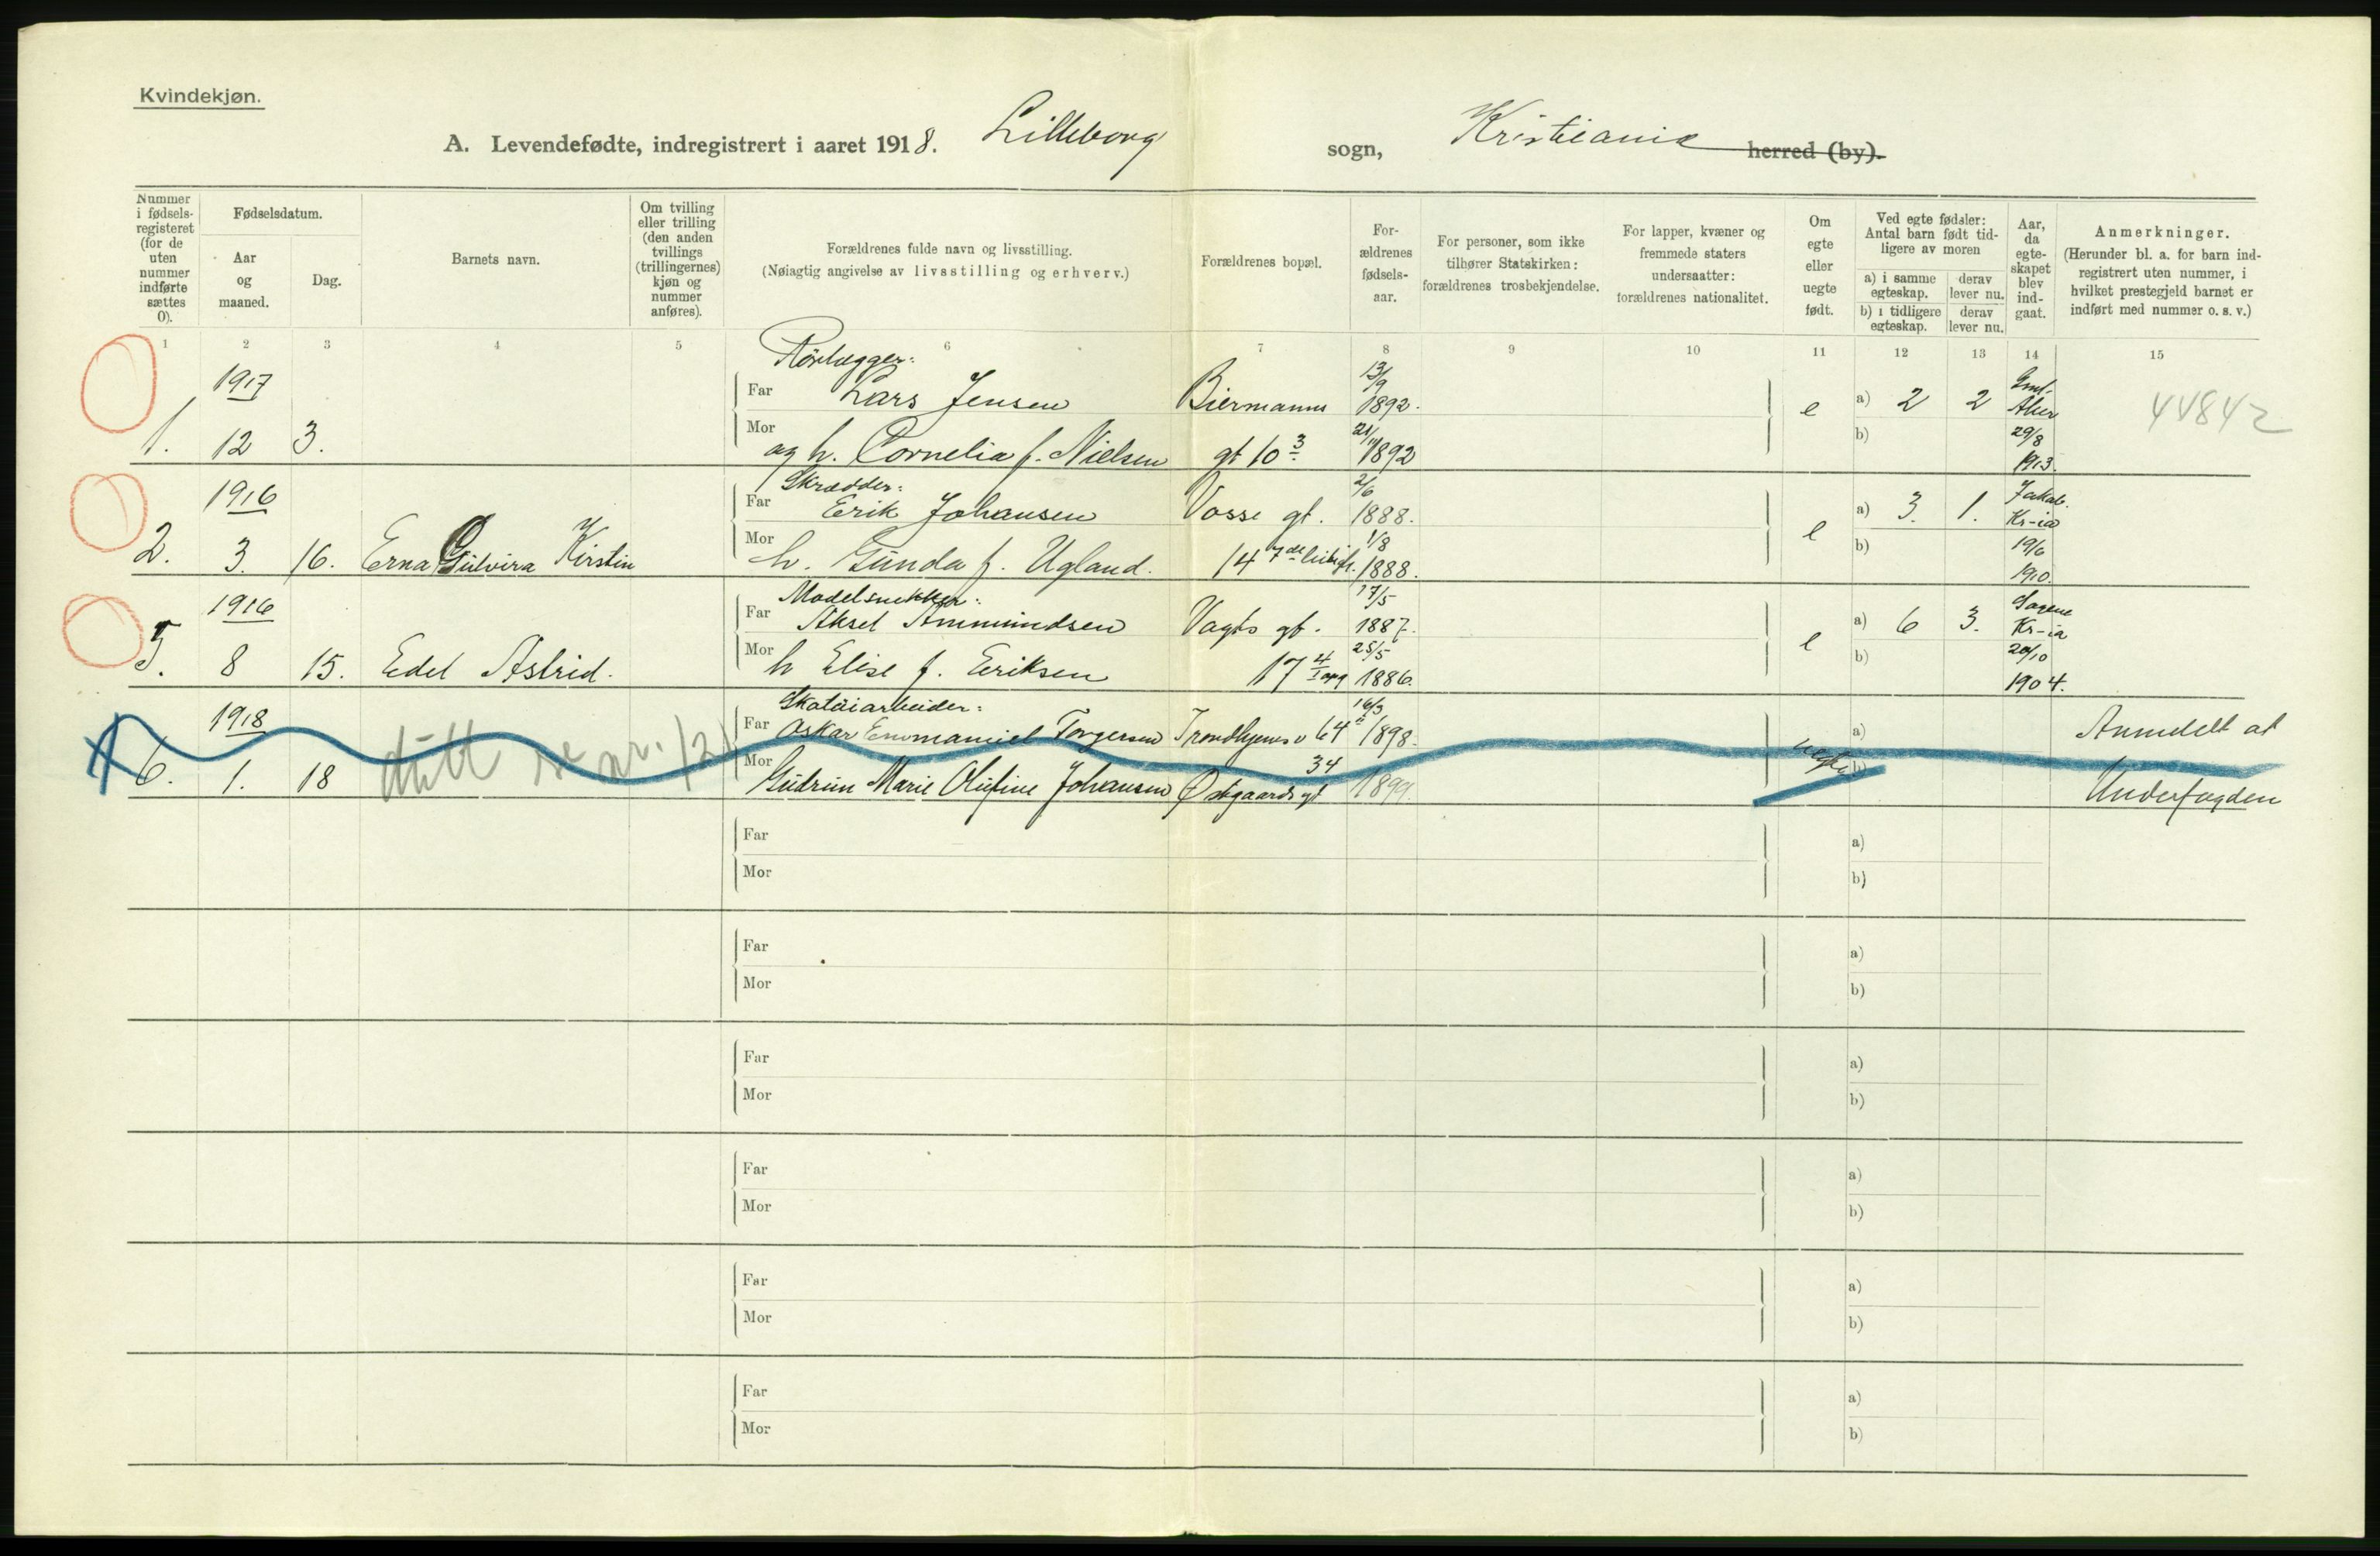 Kvindekjøn.
A. Levendefødte, indregistrert i aaret 1918. Lilleborg sogn, Kristiania herred (by).
Nummer i fødselsregisteret (for de uten nummer indførte sættes 0).
Fødselsdatum.
Aar og maaned.
Dag.
Barnets navn.
Om tvilling eller trilling (den anden tvillings (trillingernes) kjøn og nummer anføres).
Forældrenes fulde navn og livsstilling.
(Nøiagtig angivelse av livsstilling og erhverv.)
Forældrenes bopæl.
Forældrenes fødselsaar.
For personer, som ikke tilhører Statskirken: forældrenes trosbekjendelse.
For lapper, kvæner og fremmede staters undersaatter: forældrenes nationalitet.
Om egte eller uegte født.
Ved egte fødsler: Antal barn født tidligere av moren
a) i samme egteskap.
derav lever nu.
b) i tidligere egteskap.
derav lever nu.
Aar, da egteskapet blev indgaat.
Anmerkninger.
(Herunder bl. a. for barn indregistrert uten nummer, i hvilket prestegjeld barnet er indført med nummer o. s. v.)
1 2 3 4 5 6 7 8 9 10 11 12 13 14 15
Rörlægger:
1917 Far Lars Jensen Biermanns 13/9 1892. e a) 2 2 Aker 44842
1. 12 3. Mor og h. Cornelia f. Nielsen gt 10 3 1892 b) 29/8 1913.
Skrædder:
1916 Far Erik Johansen Vosse gt. 2/6 1888. e a) 3. 1. Jakob. Kr-ia
2. 3. 16. Erna Kirstin Mor h. Gunda f. Ugland. 14 1/8 1888. b) 19/6 1910.
Modelsnekker:
1916 Far Aksel Ammundsen Vagts gt. 17/5 1887. e a) 6 3. Sagene Kr-ia
5. 8 15. Edel Astrid. Mor h Elise f. Eriksen 17 4 25/5 1886. b) 20/10 1904.
Skotøiarbeider:
1918 Far Oskar Emmanuel Torgersen Trondhjemsv 64 16/3 1898. uegte a) Anmeldt at
6. 1. 18 se nr. 12 Mor Gudrun Marie Olufine Johansen Østgaards gt 34 1899. b) Underfogden
Far a)
Mor b)
Far a)
Mor b)
Far a)
Mor b)
Far a)
Mor b)
Far a)
Mor b)
Far a)
Mor b)